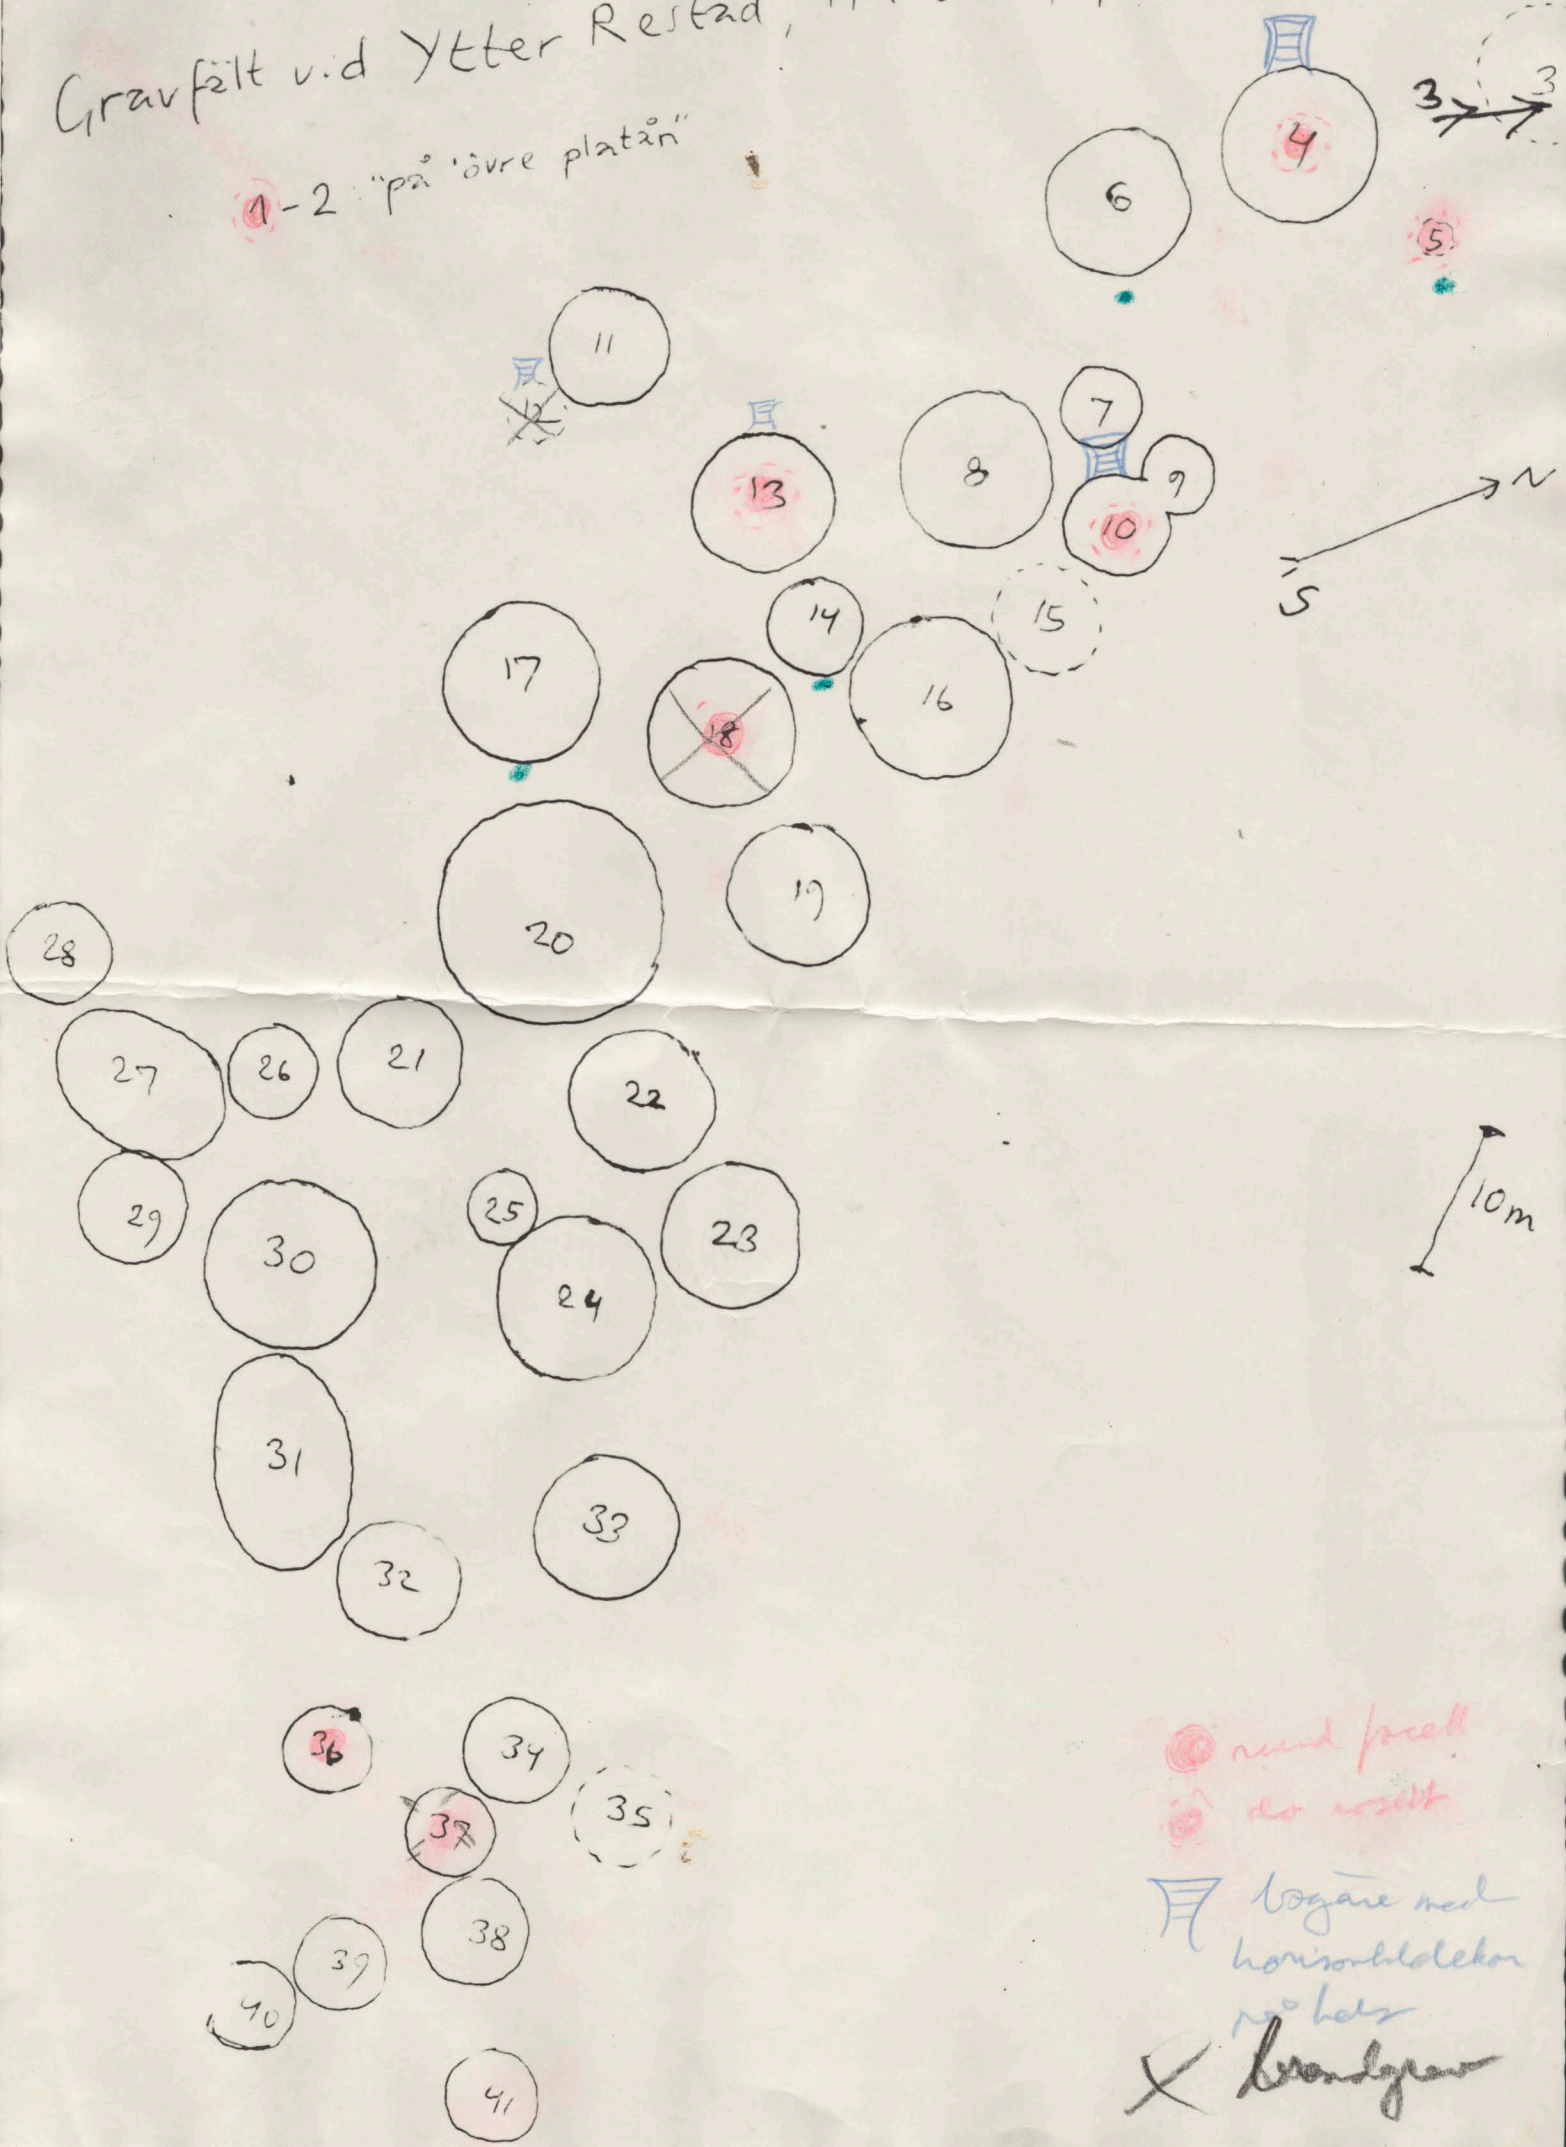 Gravfält vid Ytter Restad,
1-2 "på övre platån"
3 3
4
5
6
11
12
7
8
9
13
10
N
S
14
15
16
17
18
19
20
28
27
26
21
22
10m
29
25
30
24
23
31
33
32
36
34
37
35
38
39
40
41
rund facett
do rosett
bägare med
horisontaldekor
på hals
X brandgrav